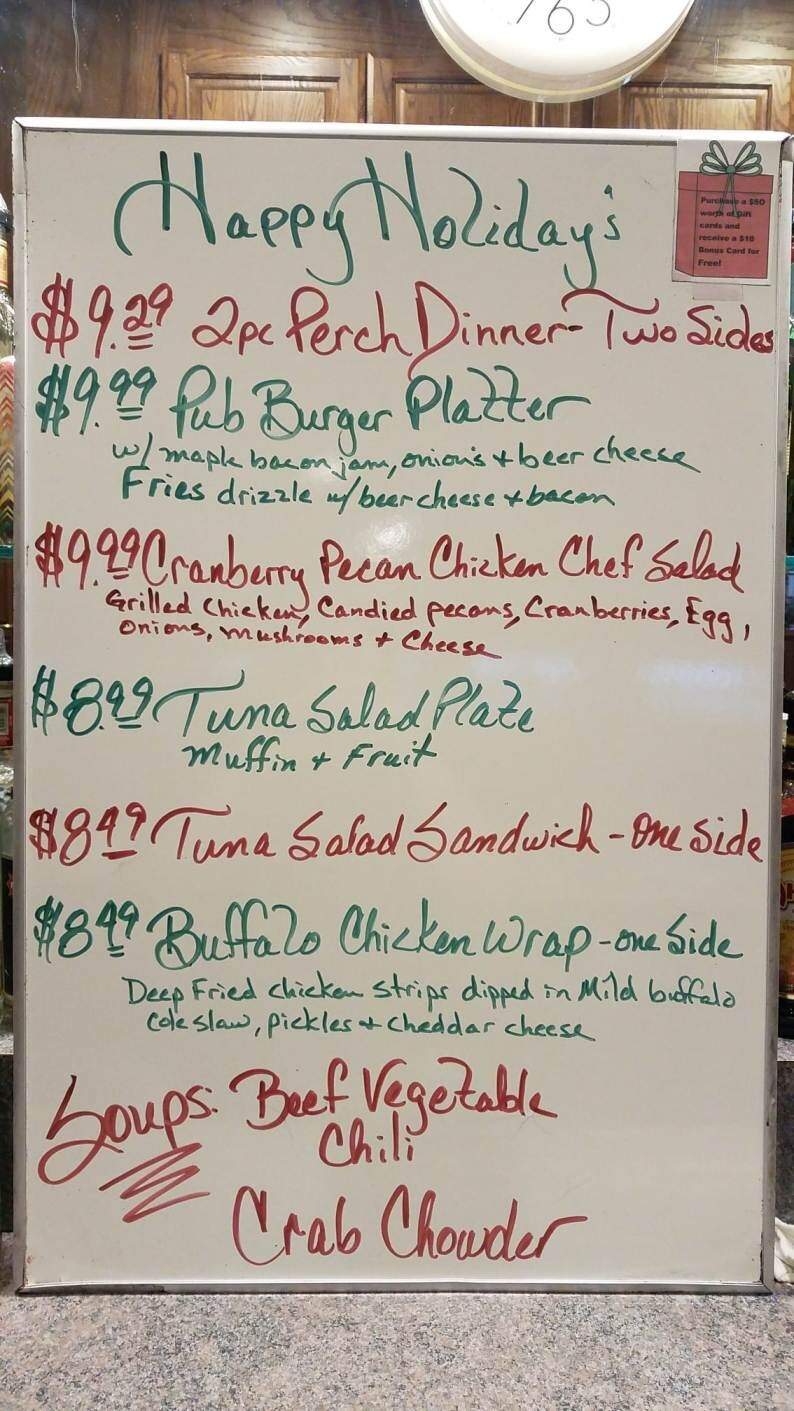 765
Happy Holiday's
Purchase a $50
worth of gift
cards and
receive a $10
Bonus Card for
Free!
$9.29 2pc Perch Dinner - Two Sides
$9.99 Pub Burger Platter
w/ maple bacon jam, onion's + beer cheese
Fries drizzle w/ beer cheese + bacon
$9.99 Cranberry Pecan Chicken Chef Salad
Grilled Chicken, Candied pecans, Cranberries, Egg,
onions, mushrooms + Cheese
$8.49 Tuna Salad Plate
Muffin + Fruit
$8.49 Tuna Salad Sandwich - One Side
$8.49 Buffalo Chicken Wrap - one Side
Deep Fried chicken strips dipped in Mild buffalo
cole slaw, pickles + cheddar cheese
Soups: Beef Vegetable
Chili
Crab Chowder